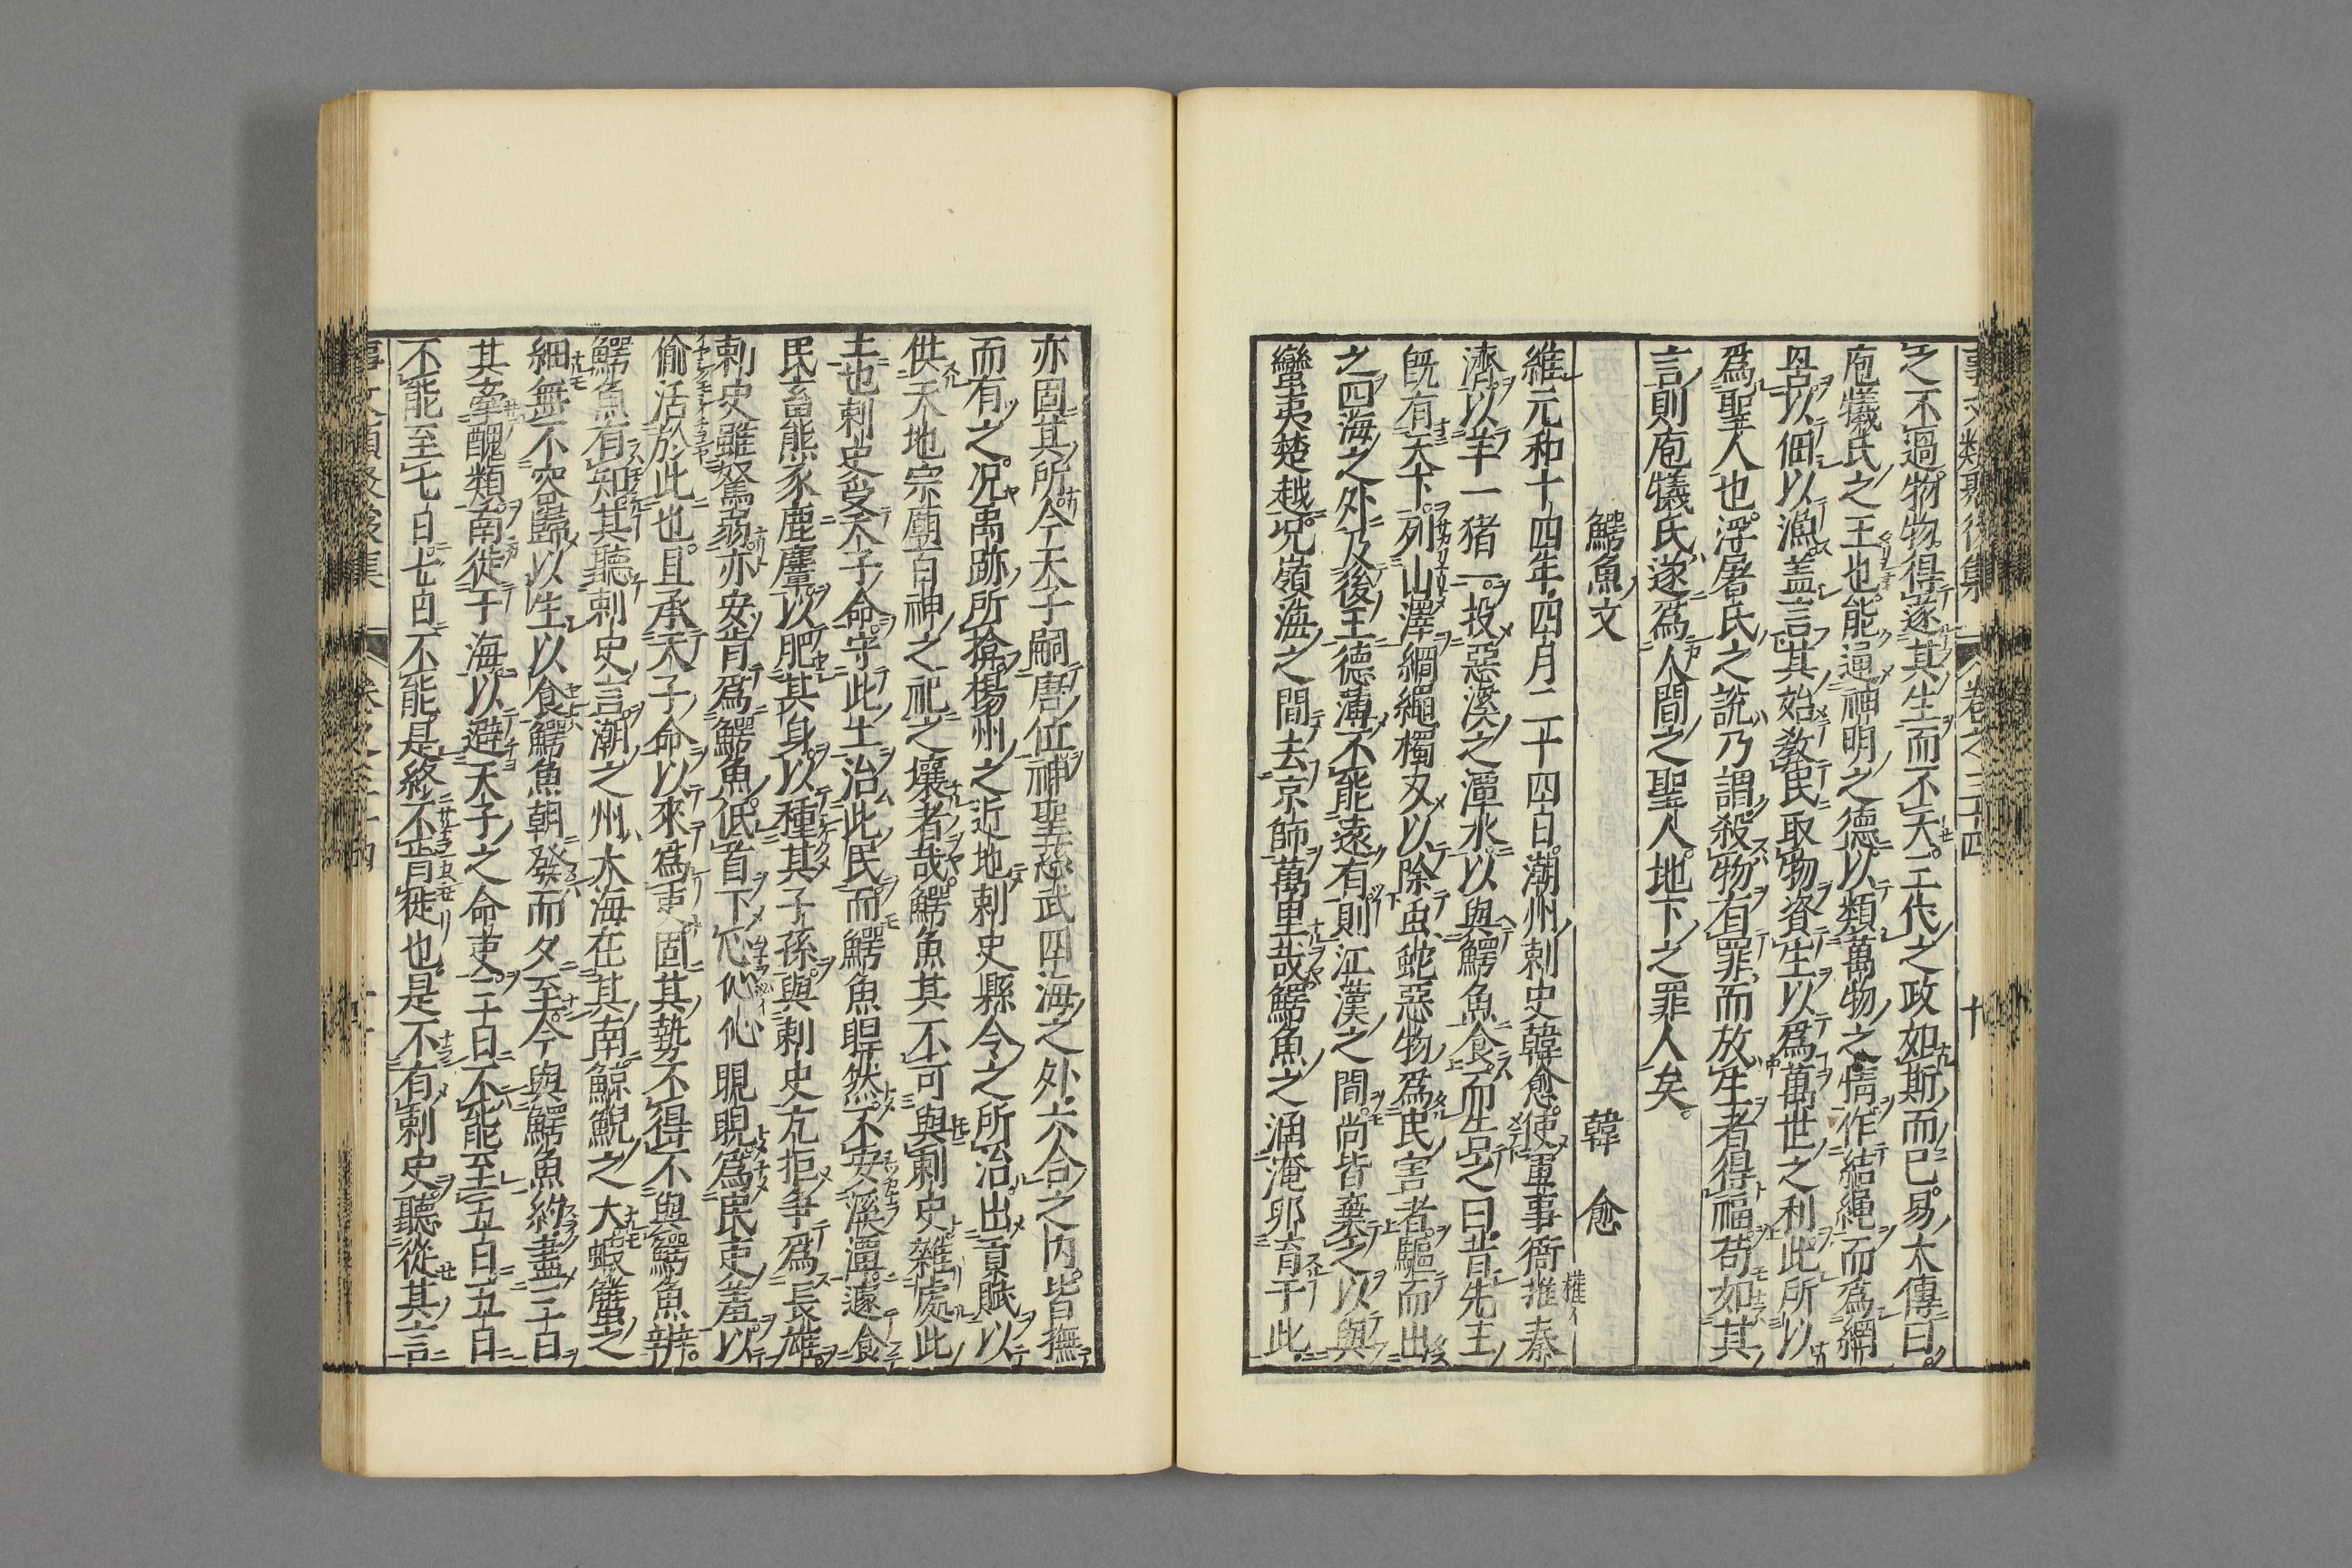 事文類聚後集 卷之三十四 十
之不過物物得遂其生而不夭三代之政如斯而已易大傳曰
庖犧氏之王也能通神明之德以類萬物之情作結繩而爲網
罟以佃以漁盖言其始教民取物資生以爲萬世之利此所以
爲聖人也浮屠氏之說乃謂殺物有罪而放生者得福苟如其
言則庖犧氏遂爲人間之聖人地下之罪人矣
鰐魚文 韓愈
維元和十四年四月二十四日潮州剌史韓愈使軍事衙推秦
濟以羊一猪一投惡溪之潭水以與鰐魚食而告之曰昔先王
旣有天下列山澤網繩擉刄以除虫蛇惡物爲民害者驅而出
之四海之外及後王德薄不能遠有則江漢之間尚皆棄之以與
蠻夷楚越况嶺海之間去京師萬里哉鰐魚之涵淹卵育于此
亦固其所今天子嗣唐位神聖慈武四海之外六合之内皆撫
而有之况禹跡所揜楊州之近地剌史縣令之所治出貢賦以
供天地宗廟百神之祀之壤者哉鰐魚其不可與剌史雜處此
土也剌史受天子命守此土治此民而鰐魚睅然不安溪潭遽食
民畜熊豕鹿麞以肥其身以種其子孫與剌史亢拒爭爲長雄
剌史雖駑弱亦安肯爲鰐魚低首下心伈伈睍睍爲民吏羞以
偷活於此也且承天子命以來爲吏固其勢不得不與鰐魚辨
鰐魚有知其聽剌史言潮之州大海在其南鯨鯢之大蝦蠏之
細無不容歸以生以食鰐魚朝發而夕至今與鰐魚約盡三日
其牽醜類南徙于海以避天子之命吏三日不能至五日五日
不能至七日七日不能是終不肯徙也是不有剌史聽從其言
事文類聚後集 卷之三十四 十一